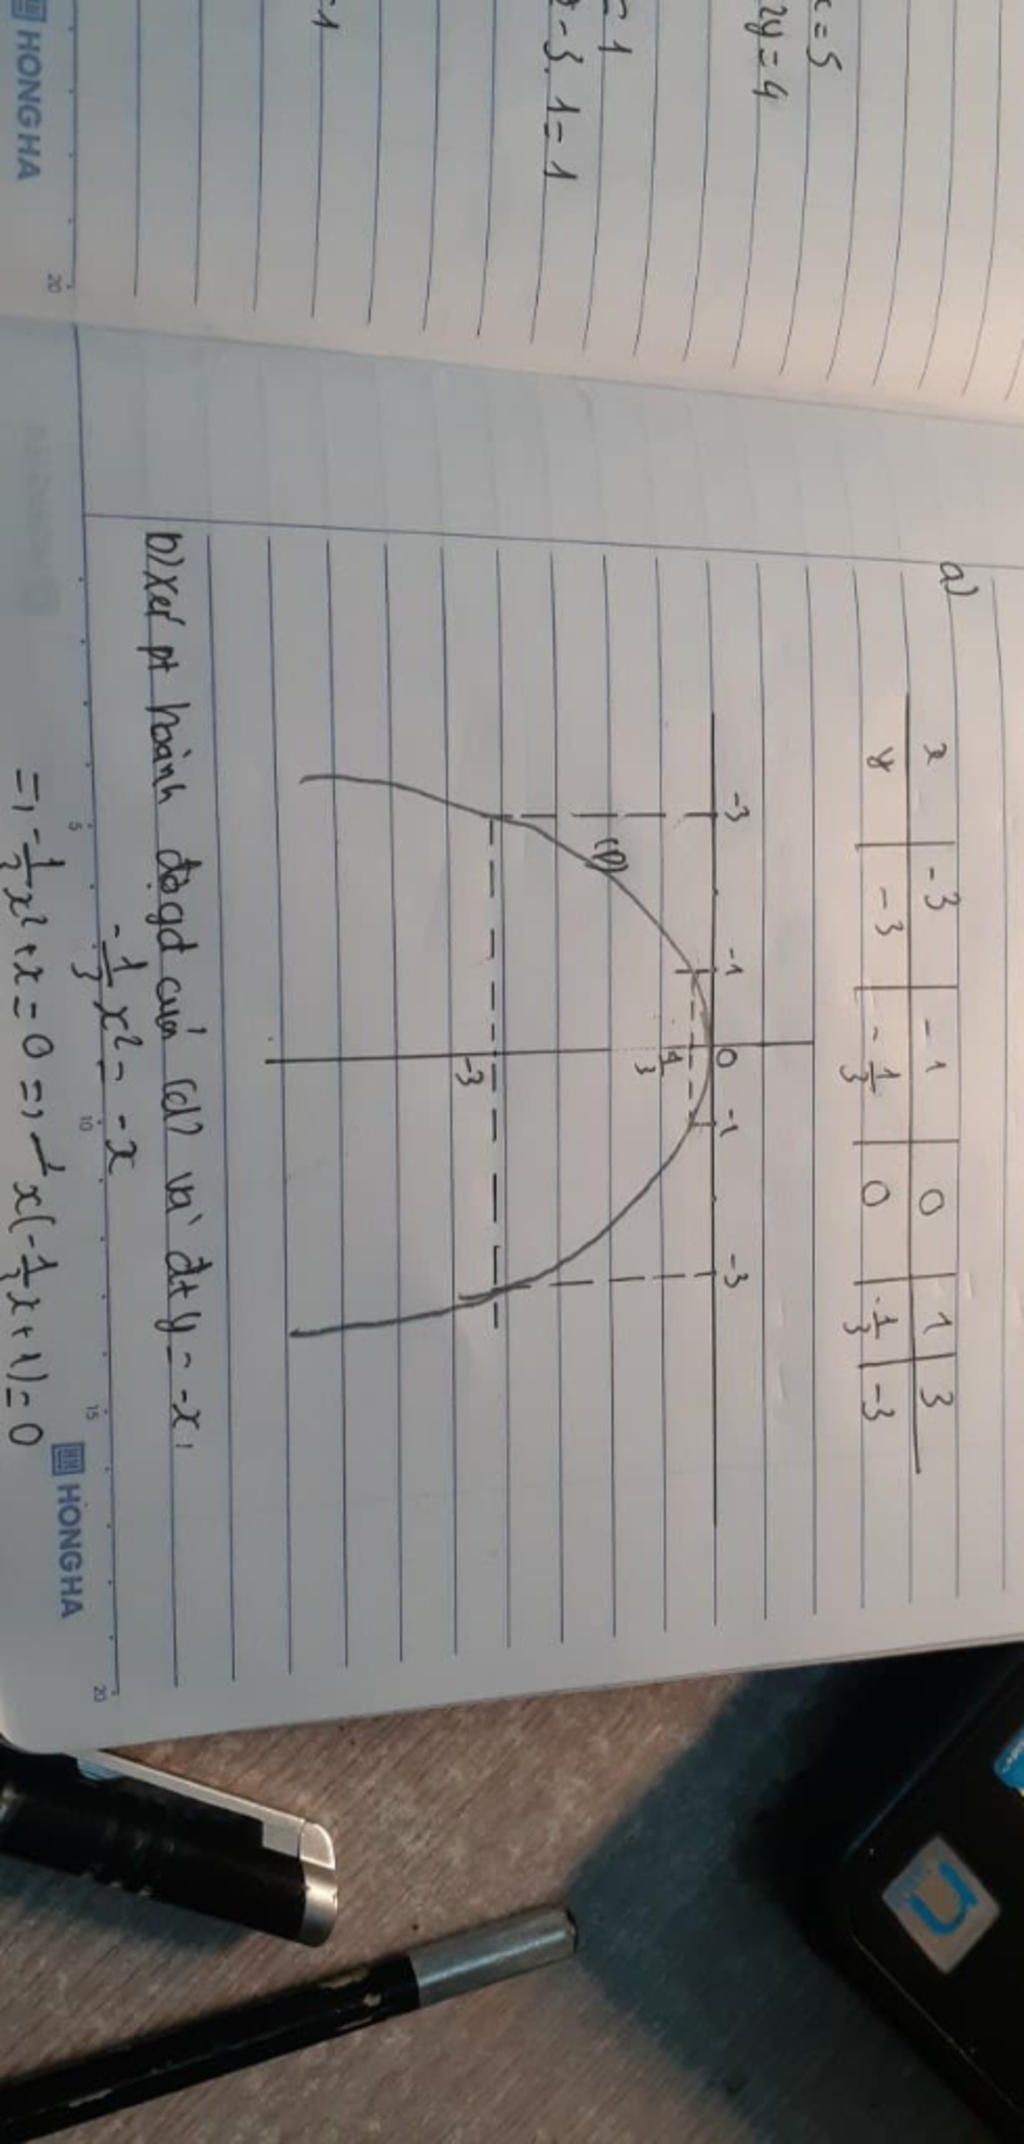 x = 5
2y = 4
= 1
2 - 3. 1 = 1
-1
HONG HA
20
a)
x | -3 | -1 | 0 | 1 | 3
y | -3 | -1/3 | 0 | -1/3 | -3
-3 -1 0 -1 -3
1/3
(P)
-3
b) Xét pt hoành độ gđ của (d) và đt y = -x,
-1/3 x² = -x
=> -1/3 x² + x = 0 => x(-1/3 x + 1) = 0
5 10 15 20
HONG HA